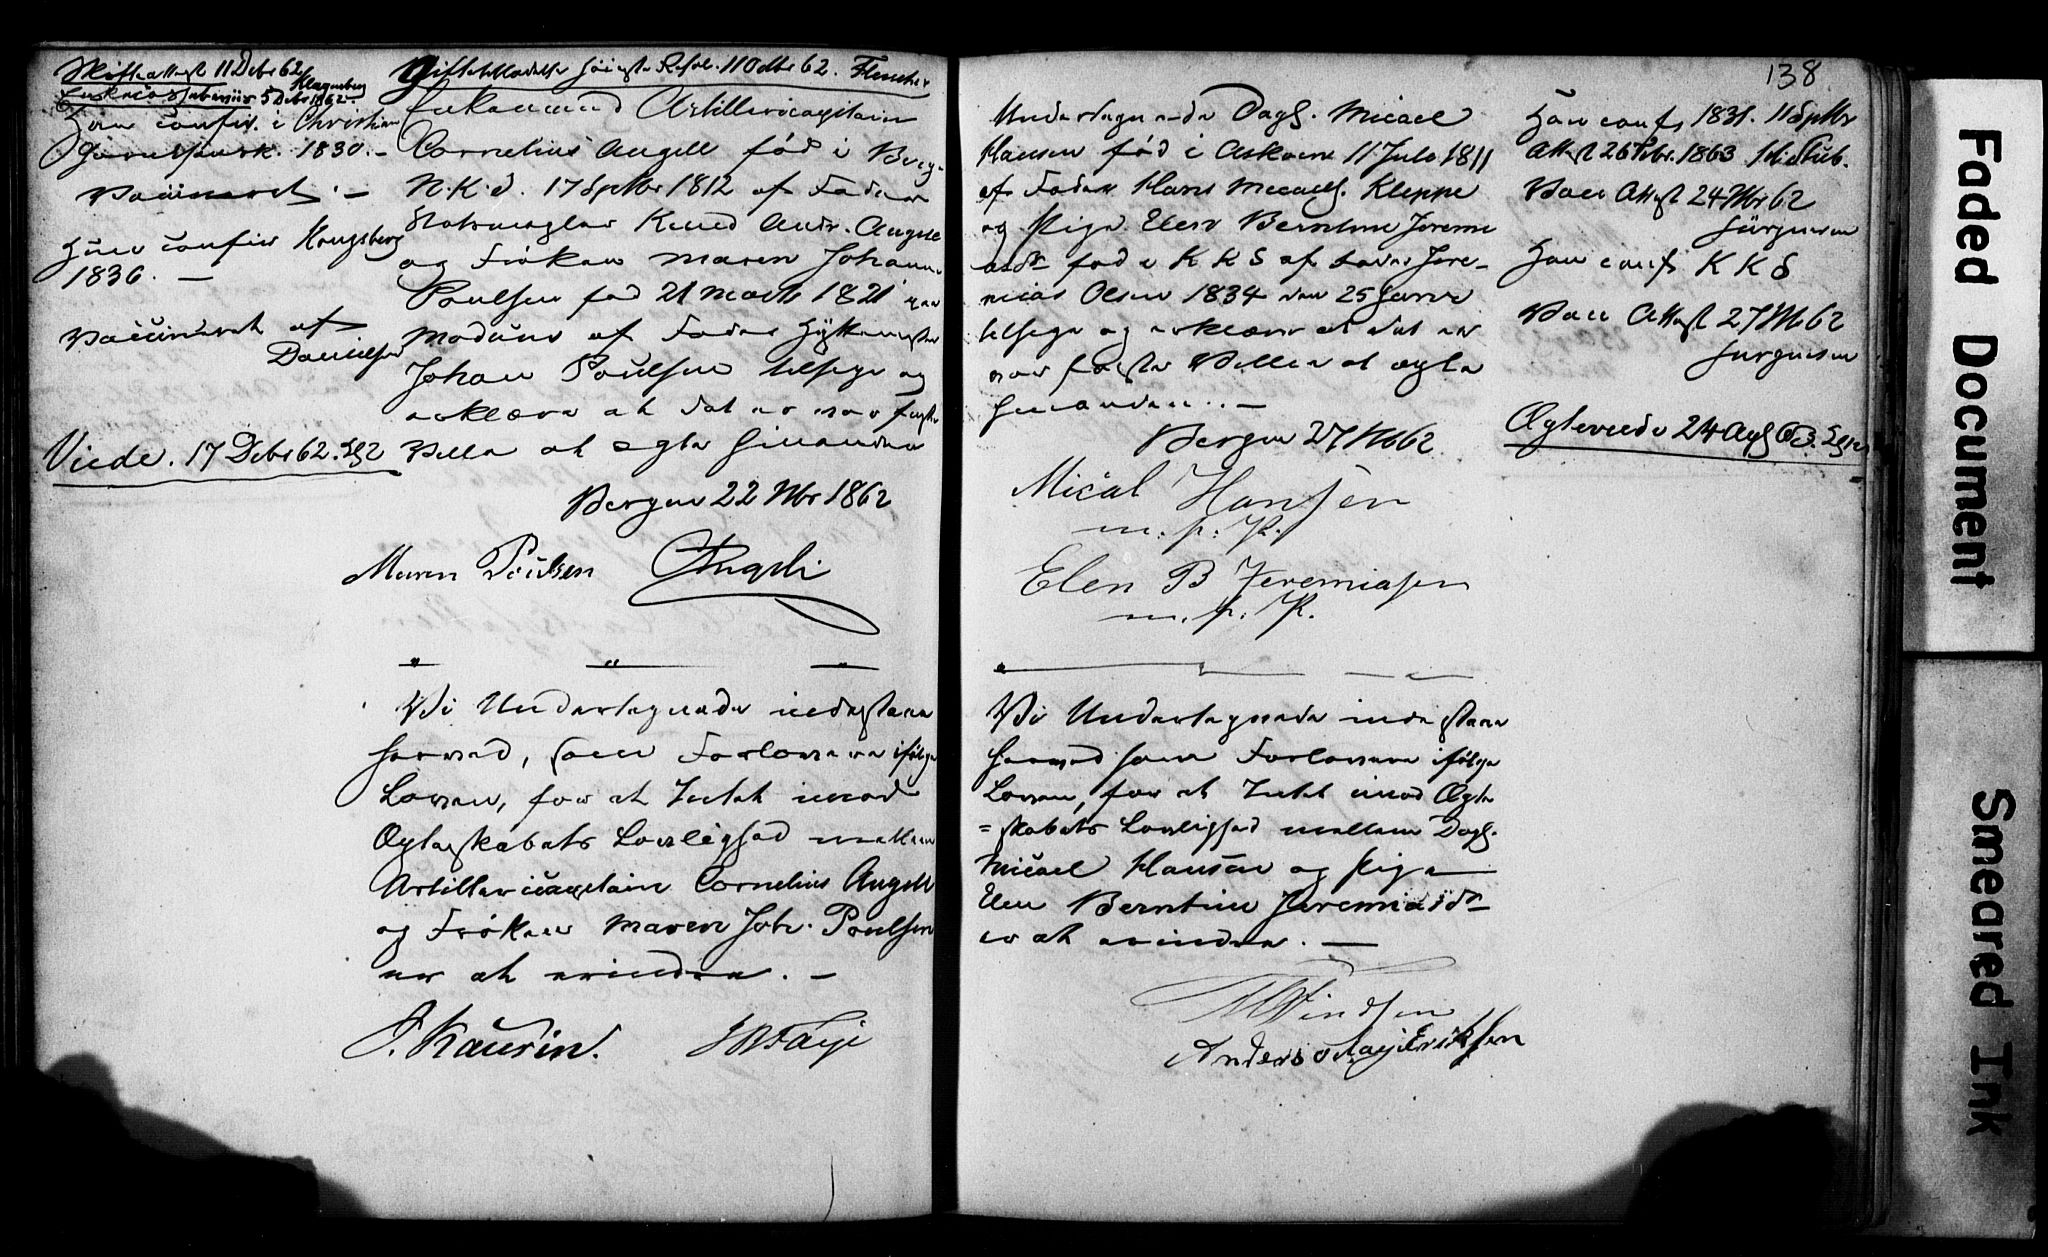 Skifteattest 11 Debr 62
Klagenberg
5 Debr 1862.
Han confir. i Christian
1830. –
Vaccineret. –
Hun confir Kongsberg
1836. –
Vaccineret af
Danielsen
Viede. 17 Debr 62.
Giftetilladelse Høieste Resol. 11 Octbr 62. Fleischer
Enkemand Artillericapitain
Cornelius Angell fød i Berg.
N.K.d. 17 Septbr 1812 af Fader
Statsmægler Knud Andr. Angell
og Frøken Maren Johanne
Poulsen fød 21 Marts 1821 paa
Modum af Fader Hyttemester
Johan Poulsen tilsige og
erklære at det er vor faste
Villie at ægte hinanden
Bergen 22 Nbr 1862
Maren Poulsen CAngell
" " "
Vi Undertegnede indestaae
herved, som Forlovere ifølge
Loven, for at Intet imod
Ægteskabets Lovlighed mellem
Artillericapitain Cornelius Angell
og Frøken Maren Joh. Poulsen
er at erindre. –
J. Kaurin. Faye
138
Undertegnede Dagl. Micael
Hansen fød i Askøen 11 Juli 1811
af Fader Hans Micaels. Kleppe
og Pige Elen Berntine Jeremi
asdr fød i K K S af Fader Jere–
mias Olsen 1834 den 25 Janr
tilsige og erklære at det er
vor faste Villie at ægte
hinanden. –
Bergen 27 Nb 62
Mical Hansen
m. p. P.
Elen B Jeremiasen
m. p. P.
Vi Undertegnede indestaae
herved som Forlovere ifølge
Loven, for at Intet imod Ægte
=skabets Lovlighed mellem Dagl.
Micael Hansen og Pige
Elen Berntine Jeremiasdr
er at erindre. –
Vindsen
Anders Eriksen
Han conf 1831. 11 Septbr
Attest 26 Febr. 1863 Stub.
Vacc Attest 24 Nbr 62
Jürgensen
Hun conf K K S
Vacc Attest 27 Nb 62
Jurgensen
Ægteviede 24 Ap 63.
Faded Document
Smeared Ink